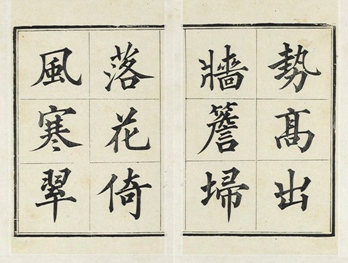 勢髙出
牆簷埽
落花倚
風寒翠